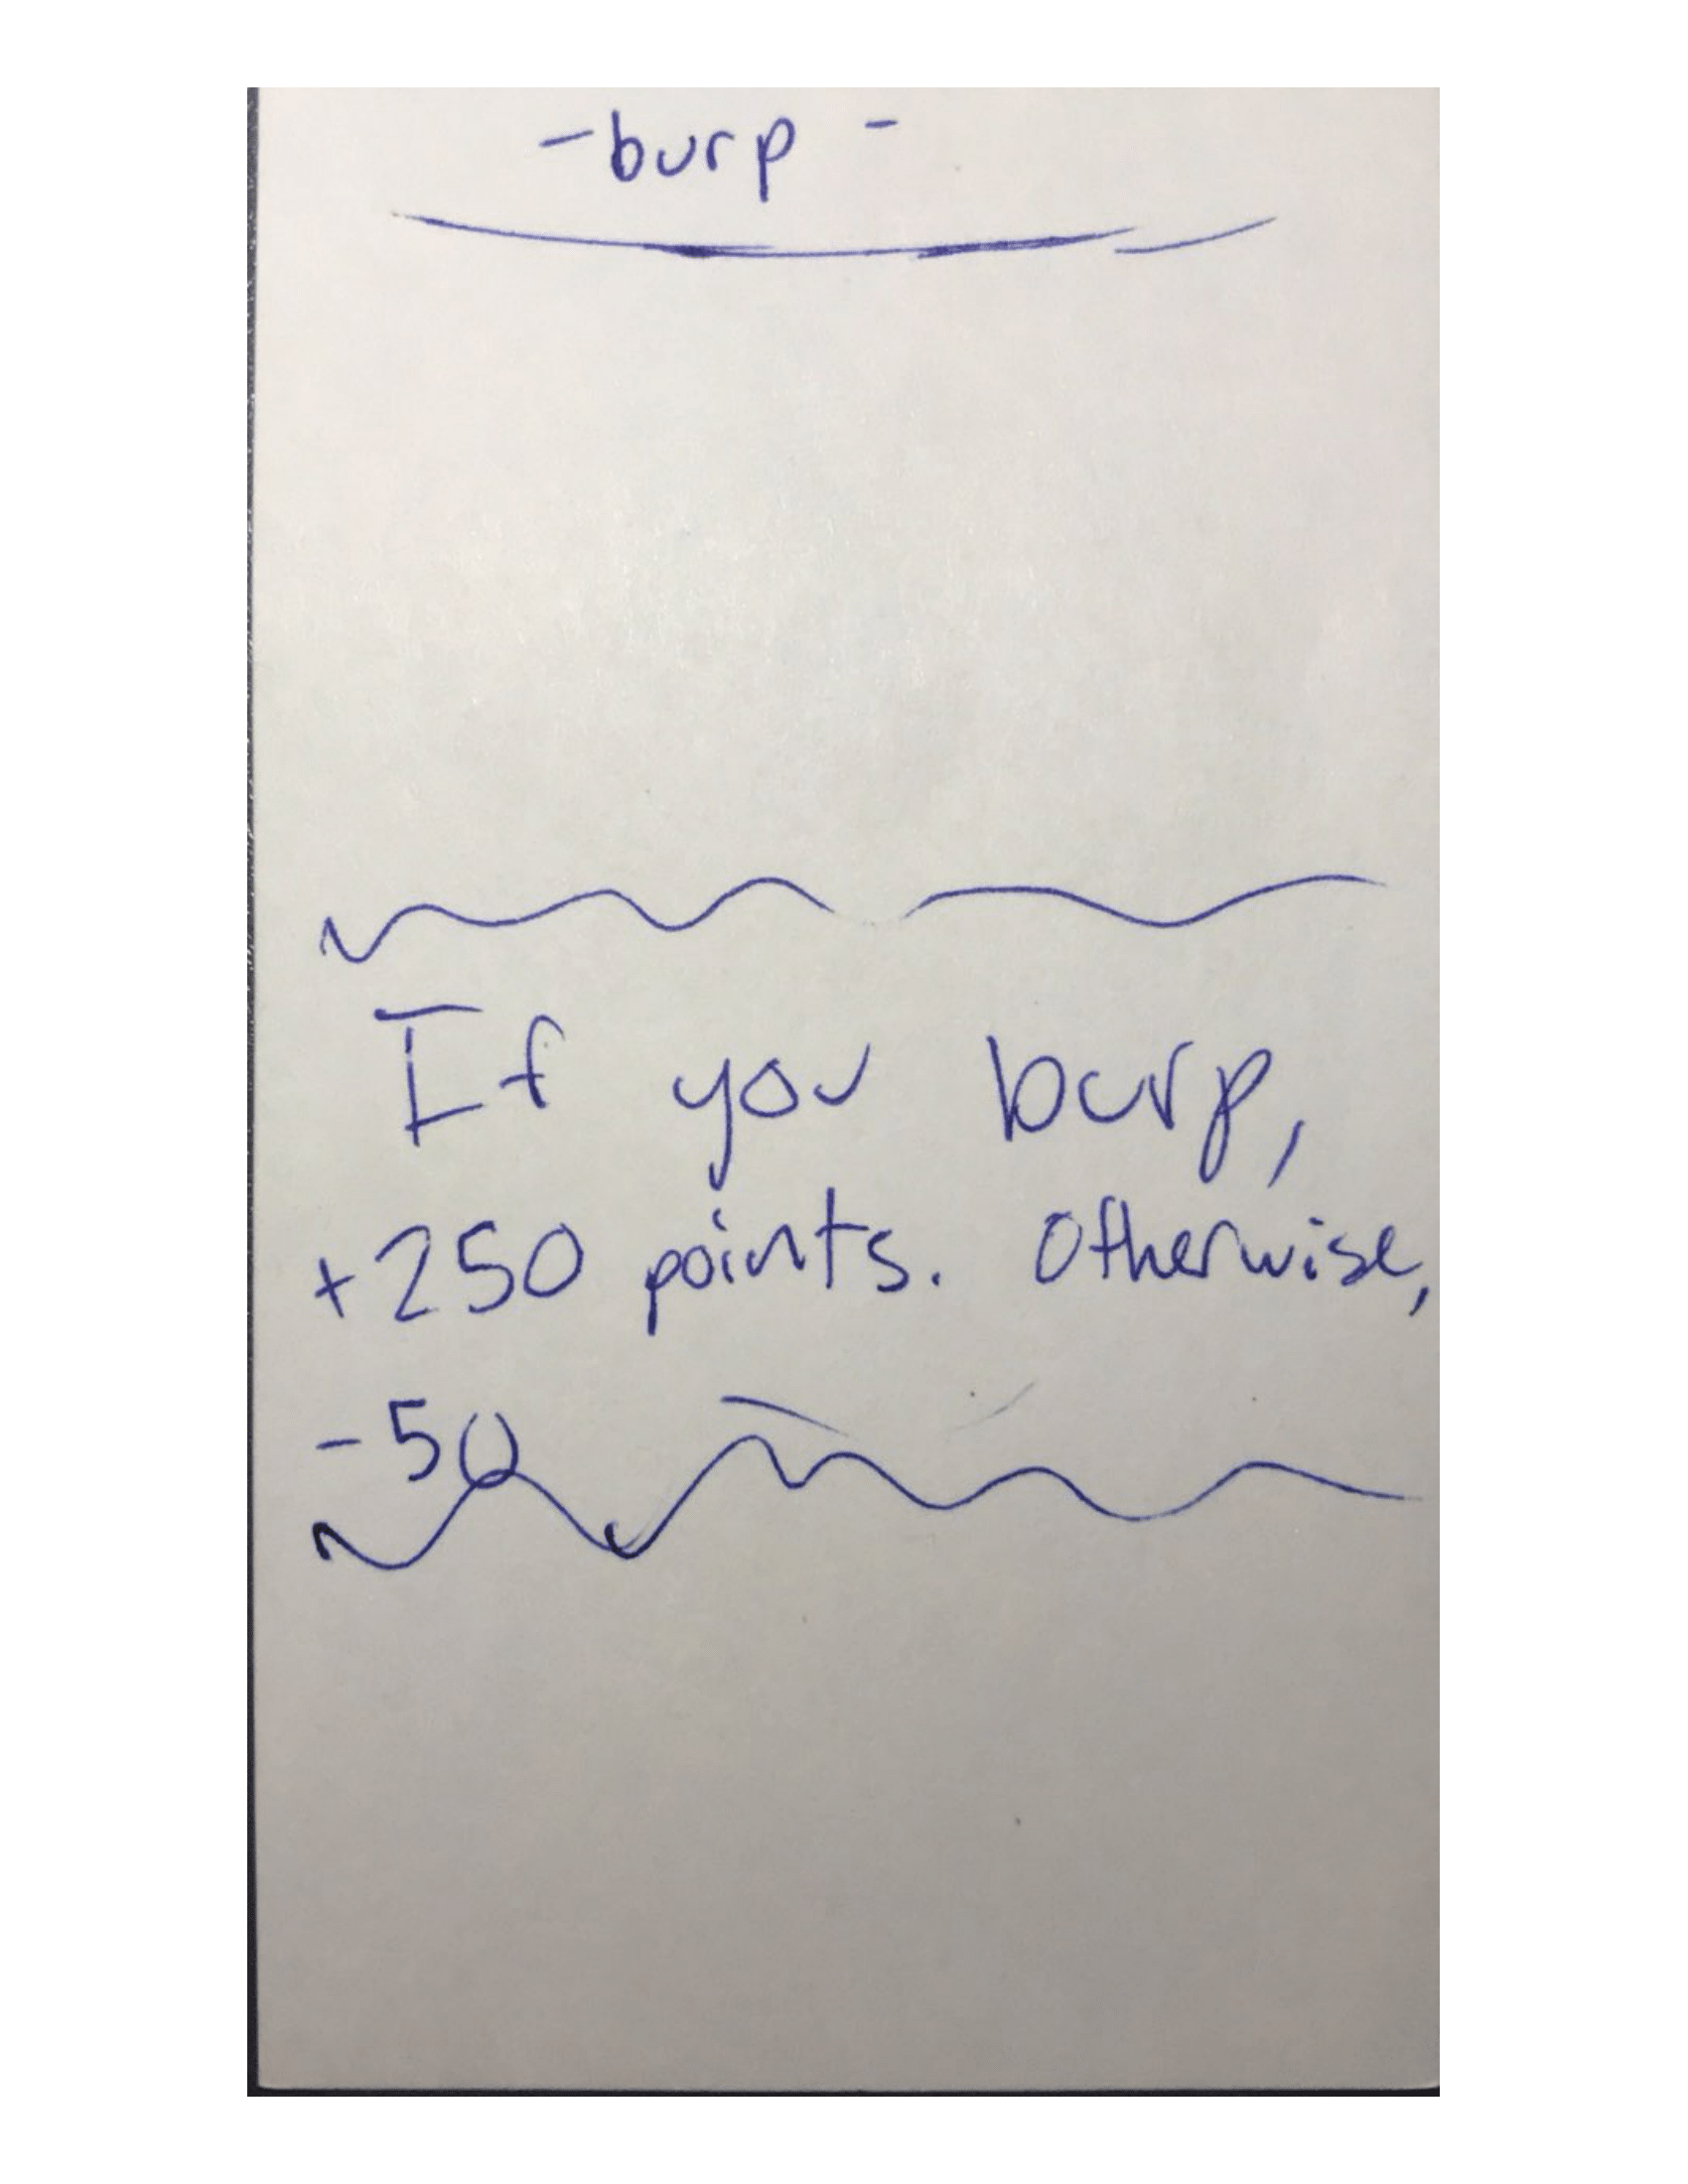 -burp -
If you burp,
+250 points. Otherwise,
-50